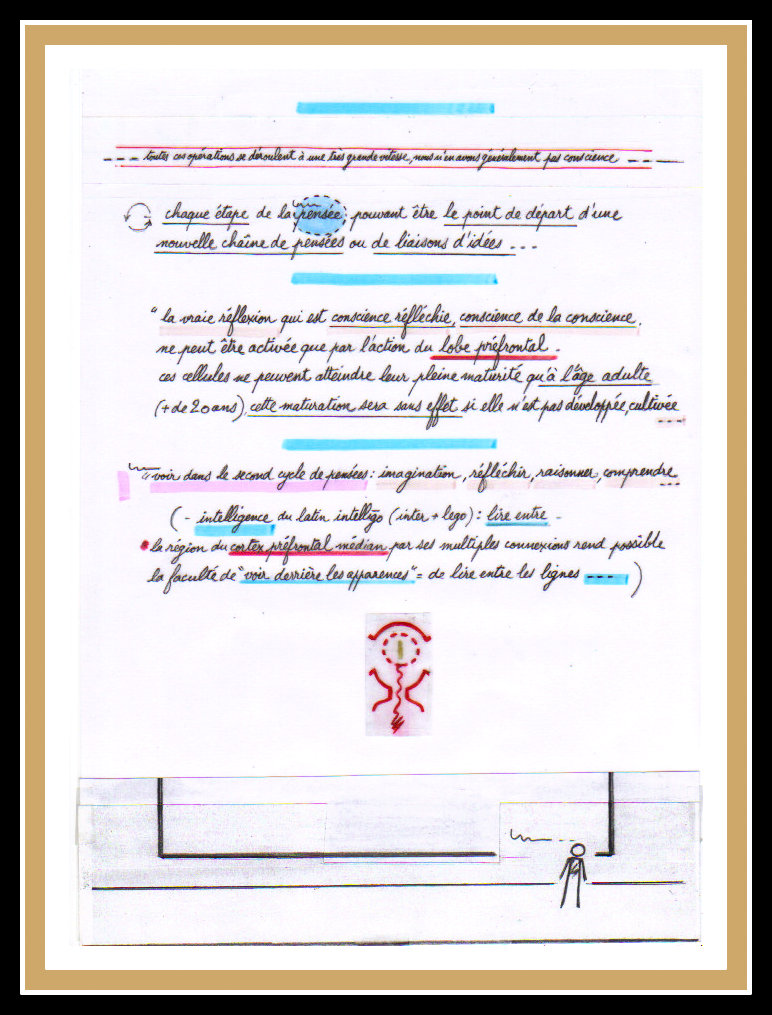 --- toutes ces opérations se déroulent à une très grande vitesse, nous n'en avons généralement pas conscience ----
chaque étape de la pensée pouvant être le point de départ d'une
nouvelle chaîne de pensées ou de liaisons d'idées ---
" la vraie réflexion qui est conscience réfléchie, conscience de la conscience,
ne peut être activée que par l'action du lobe préfrontal -
ces cellules ne peuvent atteindre leur pleine maturité qu'à l'âge adulte
(+ de 20 ans), cette maturation sera sans effet si elle n'est pas développée, cultivée
---
" voir dans le second cycle de pensées : imagination, réfléchir, raisonner, comprendre
---
(- intelligence du latin intelligo (inter + lego) : lire entre -
la région du cortex préfrontal médian par ses multiples connexions rend possible
la faculté de "voir derrière les apparences" = de lire entre les lignes --- )